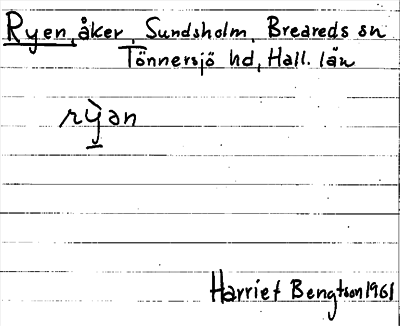 Ryen, åker, Sundsholm, Breareds sn
Tönnersjö hd, Hall. län
rỳ̱ən
Harriet Bengtson 1961